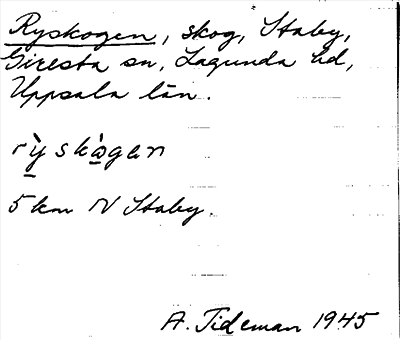 Ryskogen, skog, Staby,
Giresta sn, Lagunda hd,
Uppsala län.
rỳskògan
5 km N Staby.
A. Tideman 1945